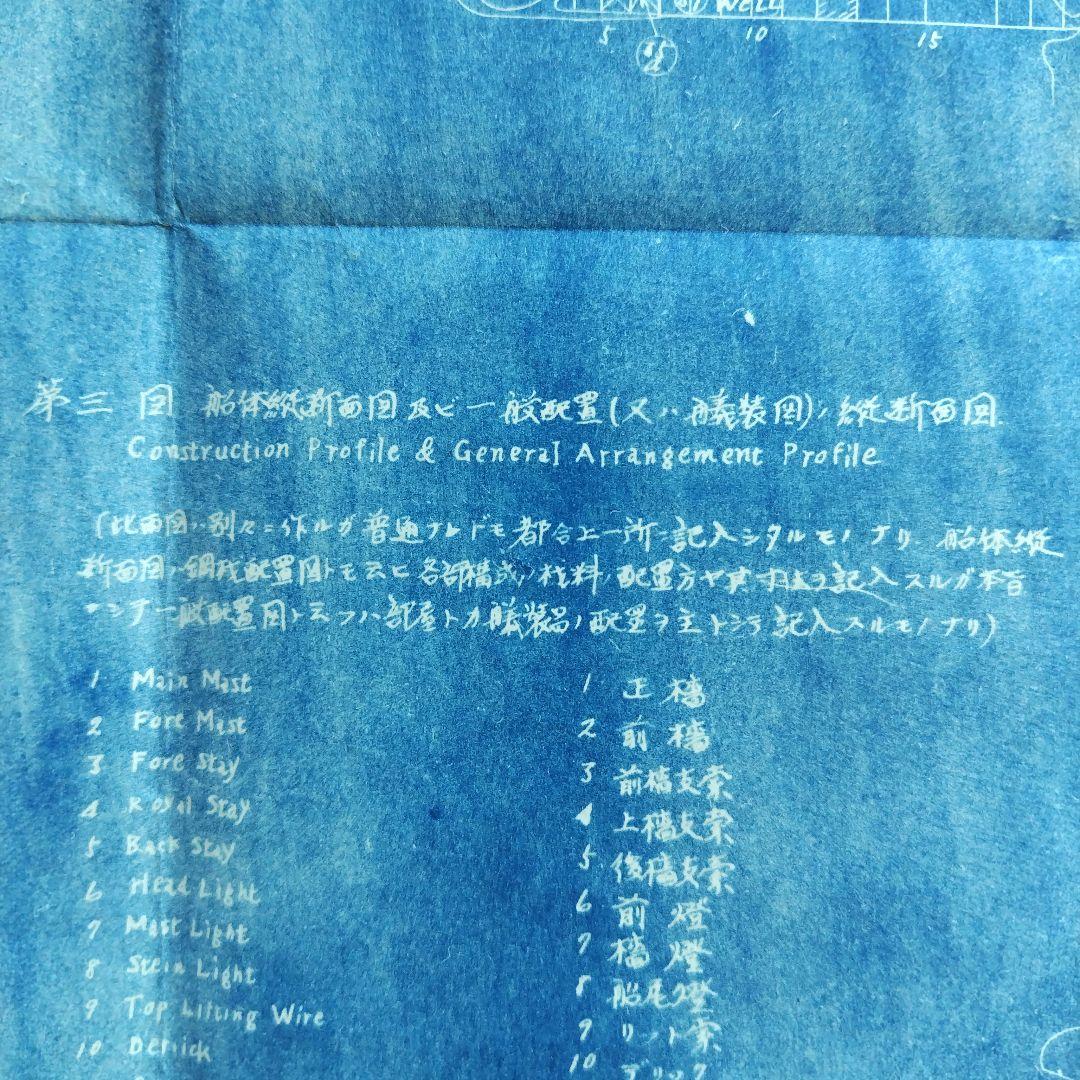 Well
5 10 15
第三図 船体縦断面図及ビ一般配置(又ハ艤装図)ノ縦断面図.
Construction Profile & General Arrangement Profile
(此両図ハ別々ニ作ルガ普通ナレドモ都合上一所ニ記入シタルモノナリ. 船体縦
断面図ハ鋼材配置図トモ云ヒ各部構成ノ材料ノ配置方ヤ其 記入スルガ本旨
ニシテ一般配置図ト云フハ部屋トカ艤装品ノ配置ヲ主トシテ記入スルモノナリ)
1 Main Mast 1 正檣
2 Fore Mast 2 前檣
3 Fore Stay 3 前檣支索
4 Royal Stay 4 上檣支索
5 Back Stay 5 後檣支索
6 Head Light 6 前燈
7 Mast Light 7 檣燈
8 Stern Light 8 船尾燈
9 Top Lifting Wire 9 リフト索
10 Derrick 10 デリック